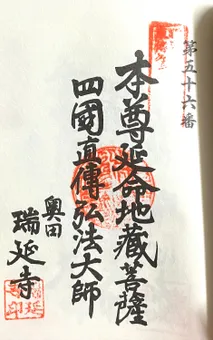 第五十六番
本尊延命地藏菩薩
四國直傳弘法大師
奥田
瑞延寺